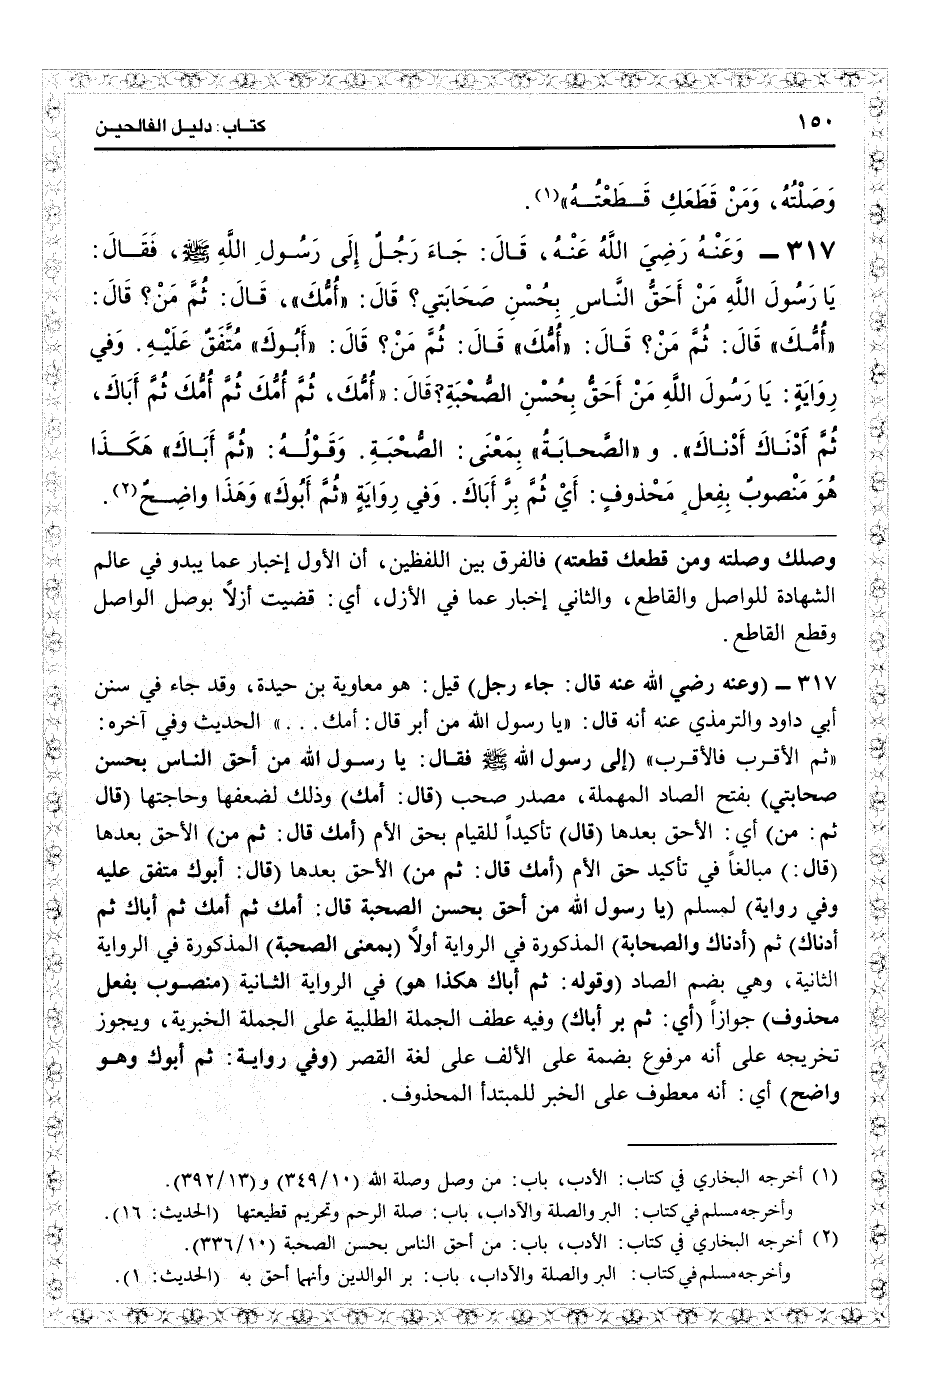 ١٥٠
كتاب: دليل الفالحين
وَصَلْتُهُ، وَمَنْ قَطَعَكِ قَطَعْتُهُ»(١).
٣١٧ ـ وَعَنْهُ رَضِيَ اللَّهُ عَنْهُ، قَالَ: جَاءَ رَجُلٌ إِلَى رَسُولِ اللَّهِ ﷺ، فَقَالَ:
يَا رَسُولَ اللَّهِ مَنْ أَحَقُّ النَّاسِ بِحُسْنِ صَحَابَتي؟ قَالَ: «أُمُّكَ»، قَالَ: ثُمَّ مَنْ؟ قَالَ:
«أُمُّكَ» قَالَ: ثُمَّ مَنْ؟ قَالَ: «أُمُّكَ» قَالَ: ثُمَّ مَنْ؟ قَالَ: «أَبُوكَ» مُتَّفَقٌ عَلَيْهِ. وَفي
رِوَايَةٍ: يَا رَسُولَ اللَّهِ مَنْ أَحَقُّ بِحُسْنِ الصُّحْبَةِ؟ قَالَ: «أُمُّكَ، ثُمَّ أُمُّكَ ثُمَّ أُمُّكَ ثُمَّ أَبَاكَ،
ثُمَّ أَدْنَاكَ أَدْناكَ». و «الصَّحابَةُ» بِمَعْنَى: الصُّحْبَةِ. وَقَوْلُهُ: «ثُمَّ أَبَاكَ» هَكَذَا
هُوَ مَنْصوبٌ بِفِعلٍ مَحْذوفٍ: أَيْ ثُمَّ بِرَّ أَبَاكَ. وَفي رِوَايَةٍ «ثُمَّ أَبُوكَ» وَهَذَا واضِحٌ(٢).
وصلك وصلته ومن قطعك قطعته) فالفرق بين اللفظين، أن الأول إخبار عما يبدو في عالم
الشهادة للواصل والقاطع، والثاني إخبار عما في الأزل، أي: قضيت أزلاً بوصل الواصل
وقطع القاطع.
٣١٧ ـ (وعنه رضي الله عنه قال: جاء رجل) قيل: هو معاوية بن حيدة، وقد جاء في سنن
أبي داود والترمذي عنه أنه قال: «يا رسول الله من أبر قال: أمك. . .» الحديث وفي آخره:
«ثم الأقرب فالأقرب» (إلى رسول الله ﷺ فقال: يا رسول الله من أحق الناس بحسن
صحابتي) بفتح الصاد المهملة، مصدر صحب (قال: أمك) وذلك لضعفها وحاجتها (قال
ثم: من) أي: الأحق بعدها (قال) تأكيداً للقيام بحق الأم (أمك قال: ثم من) الأحق بعدها
(قال:) مبالغاً في تأكيد حق الأم (أمك قال: ثم من) الأحق بعدها (قال: أبوك متفق عليه
وفي رواية) لمسلم (يا رسول الله من أحق بحسن الصحبة قال: أمك ثم أمك ثم أباك ثم
أدناك) ثم (أدناك والصحابة) المذكورة في الرواية أولاً (بمعنى الصحبة) المذكورة في الرواية
الثانية، وهي بضم الصاد (وقوله: ثم أباك هكذا هو) في الرواية الثانية (منصوب بفعل
محذوف) جوازاً (أي: ثم بر أباك) وفيه عطف الجملة الطلبية على الجملة الخبرية، ويجوز
تخريجه على أنه مرفوع بضمة على الألف على لغة القصر (وفي رواية: ثم أبوك وهو
واضح) أي: أنه معطوف على الخبر للمبتدأ المحذوف.
(١) أخرجه البخاري في كتاب: الأدب، باب: من وصل وصلة الله (٣٤٩/١٠) و(٣٩٢/١٣).
وأخرجه مسلم في كتاب: البر والصلة والآداب، باب: صلة الرحم وتحريم قطيعتها (الحديث: ١٦).
(٢) أخرجه البخاري في كتاب: الأدب، باب: من أحق الناس بحسن الصحبة (٣٣٦/١٠).
وأخرجه مسلم في كتاب: البر والصلة والآداب، باب: بر الوالدين وأنهما أحق به (الحديث: ١).